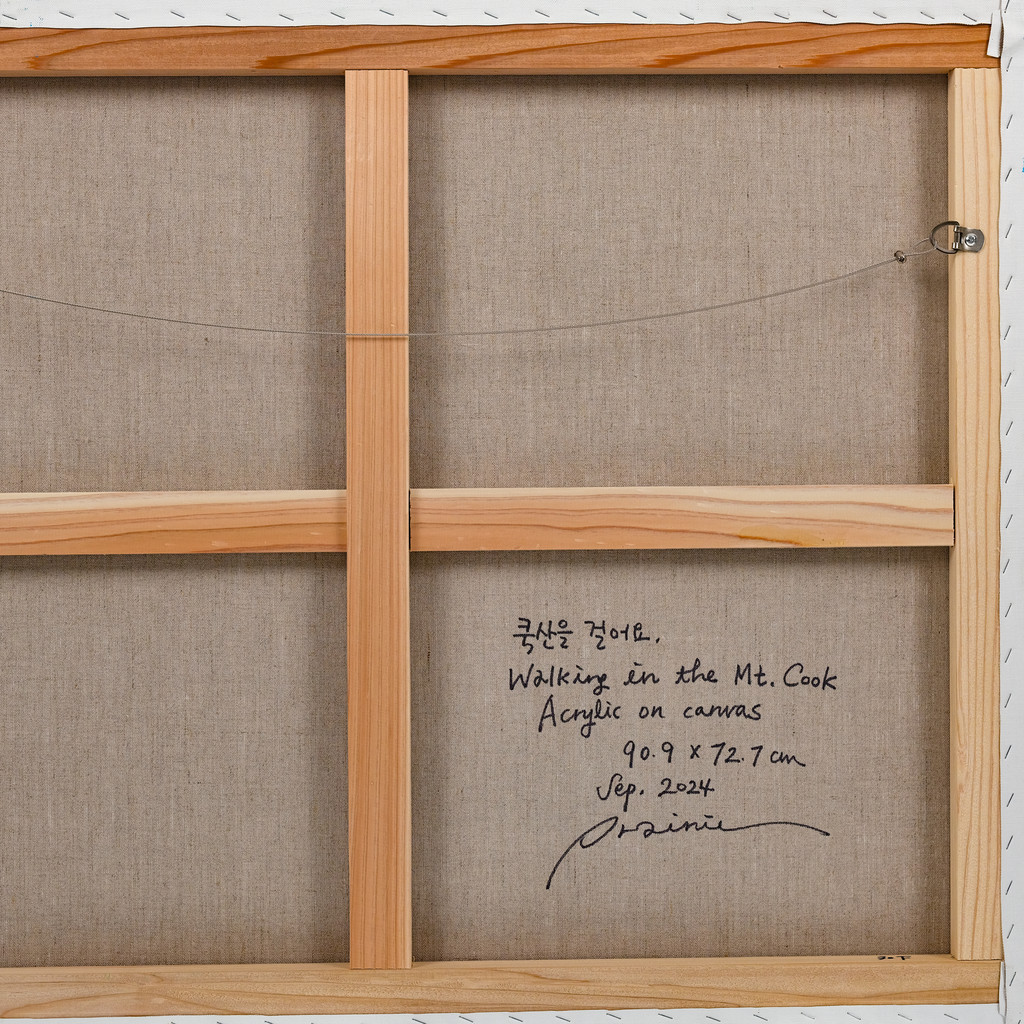 쿡산을 걸어요.
Walking in the Mt. Cook
Acrylic on canvas
90.9 x 72.7 cm
Sep. 2024